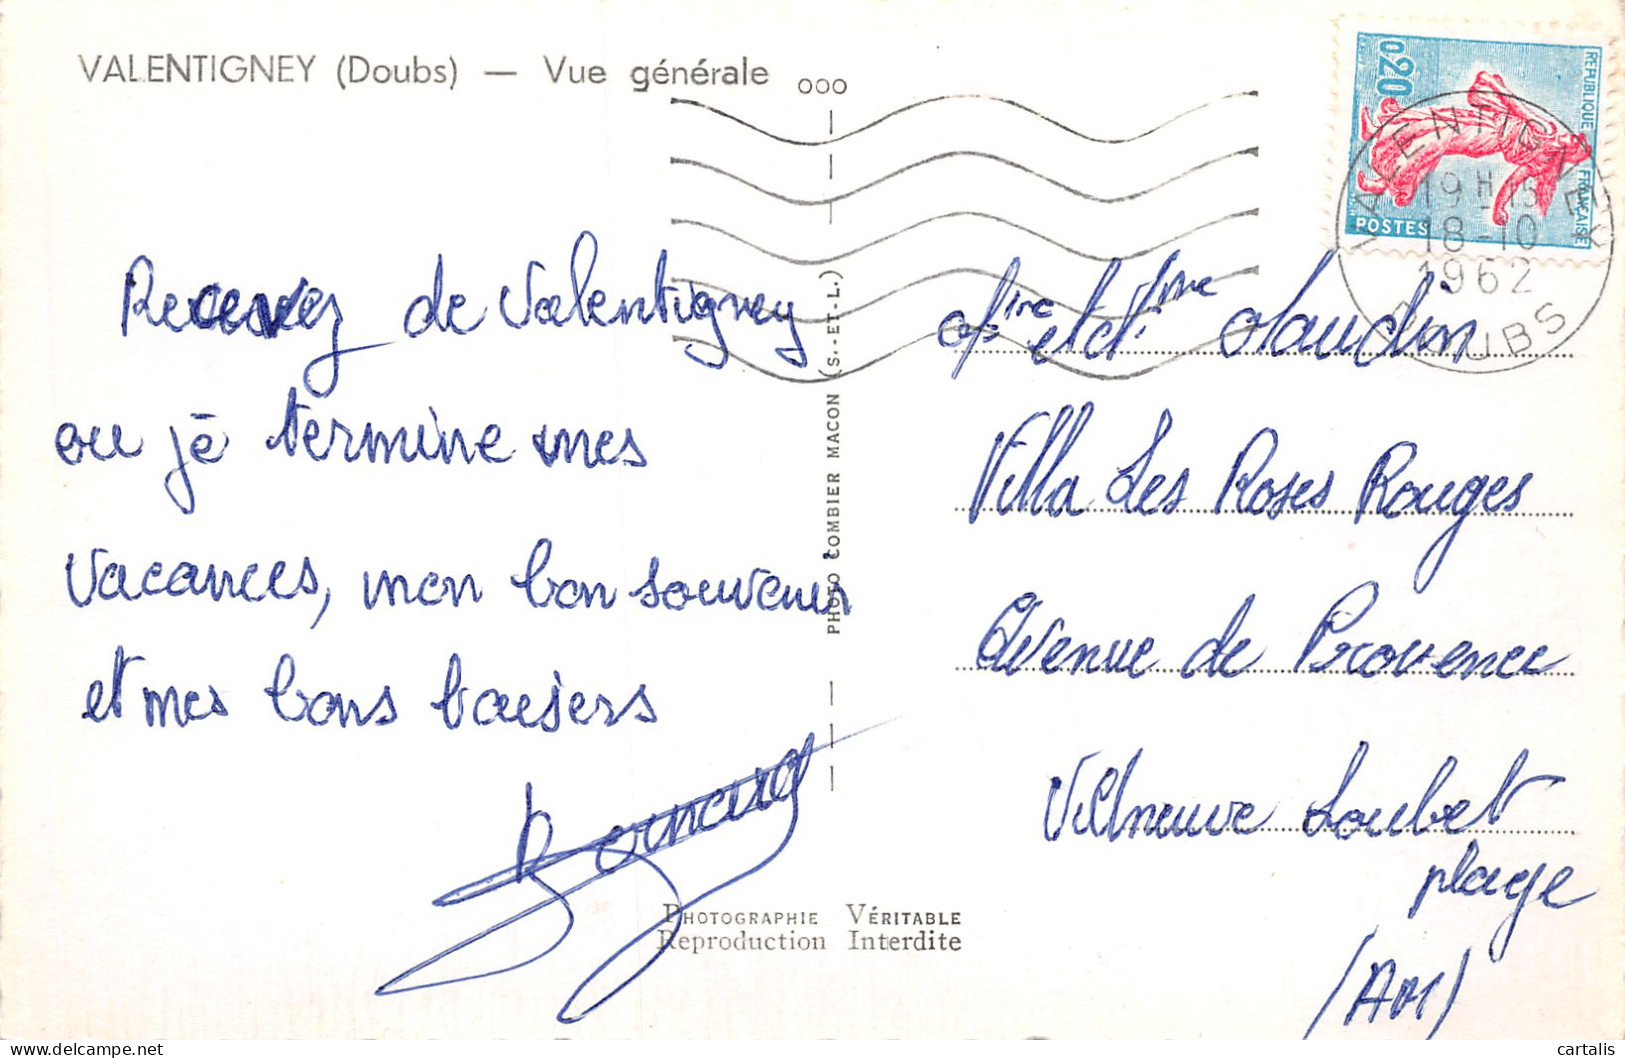 VALENTIGNEY (Doubs) — Vue générale
ooo
0,20
REPUBLIQUE FRANÇAISE
POSTES
VALENTIGNEY
19H15
18-10
1962
DOUBS
Recevez de Valentigney
ou je termine mes
Vacances, mon bon souvenir
et mes bons baisers
PHOTO COMBIER MACON (S.-ET-L.)
Mr et Mme
Villa Les Roses Rouges
Avenue de Provence
Villneuve Loubet
plage
(AM)
PHOTOGRAPHIE VÉRITABLE
Reproduction Interdite
cartalis